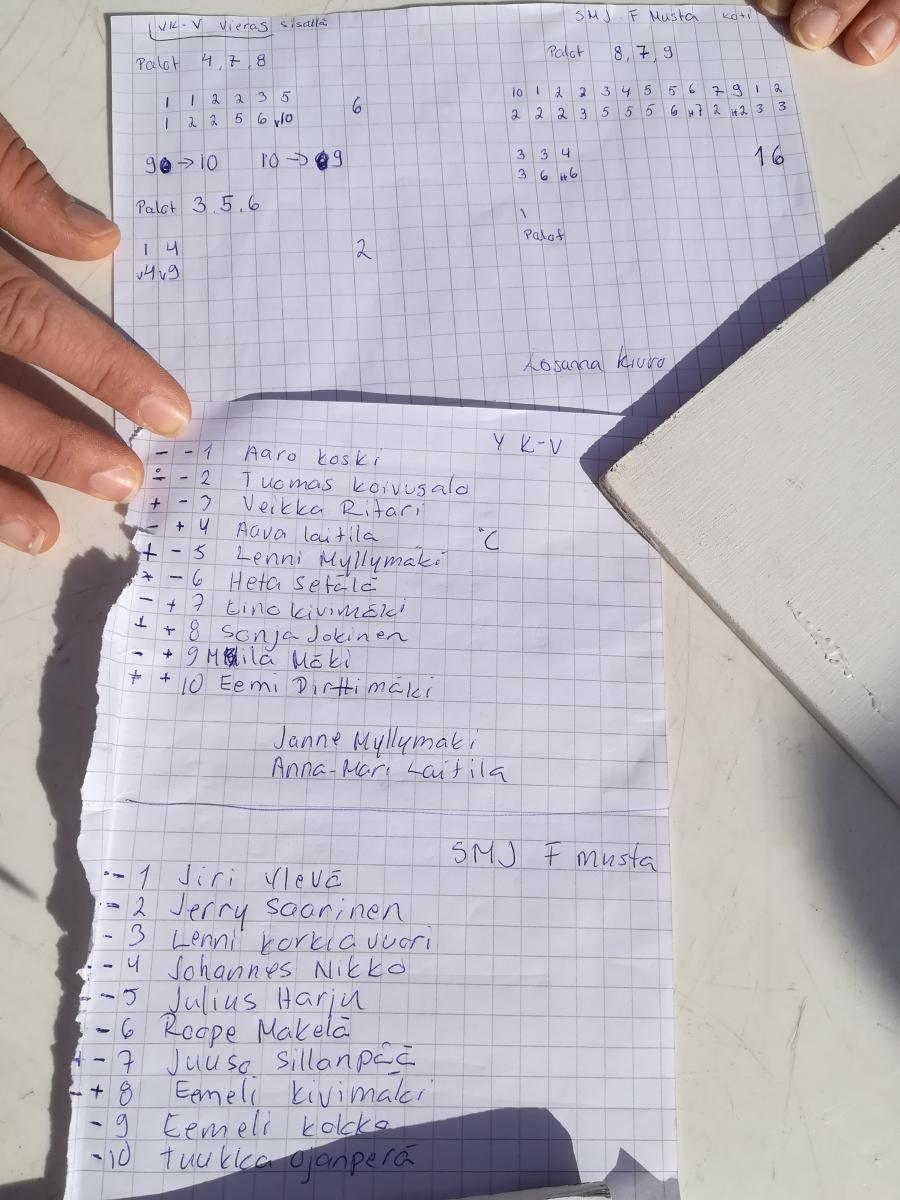 YK-V Vieras Sisällä
Palot 4, 7, 8
1 1 2 2 3 5
1 2 2 5 6 v10
6
9 → 10 10 → 9
Palot 3.5.6
1 4
v4 v9
2
SMJ F Musta koti
Palot 8, 7, 9
10 1 2 2 3 4 5 5 6 7 9 1 2
2 2 2 3 5 5 5 6 H7 2 H2 3 3
3 3 4
3 6 H6
16
Palot
Kiuro
Y K-V
- - 1 Aaro Koski
÷ - 2 Tuomas Koivusalo
+ - 3 Veikka Ritari
- + 4 Aava Laitila
°C
+ - 5 Lenni Myllymäki
- 6 Heta Setälä
- + 7 Eino Kivimäki
+ + 8 Sonja Jokinen
- + 9 Mäki
+ + 10 Eemi
Janne Myllymäki
Anna-Mari Laitila
SMJ F musta
-- 1 Jiri Ylevä
- 2 Jerry Saarinen
- 3 Lenni Korkiavuori
- 4 Johannes Nikko
- 5 Julius Harju
- 6 Roope Mäkelä
- 7 Juuso Sillanpää
- + 8 Eemeli Kivimäki
- 9 Eemeli Kokko
-10 Tuukka Ojanperä